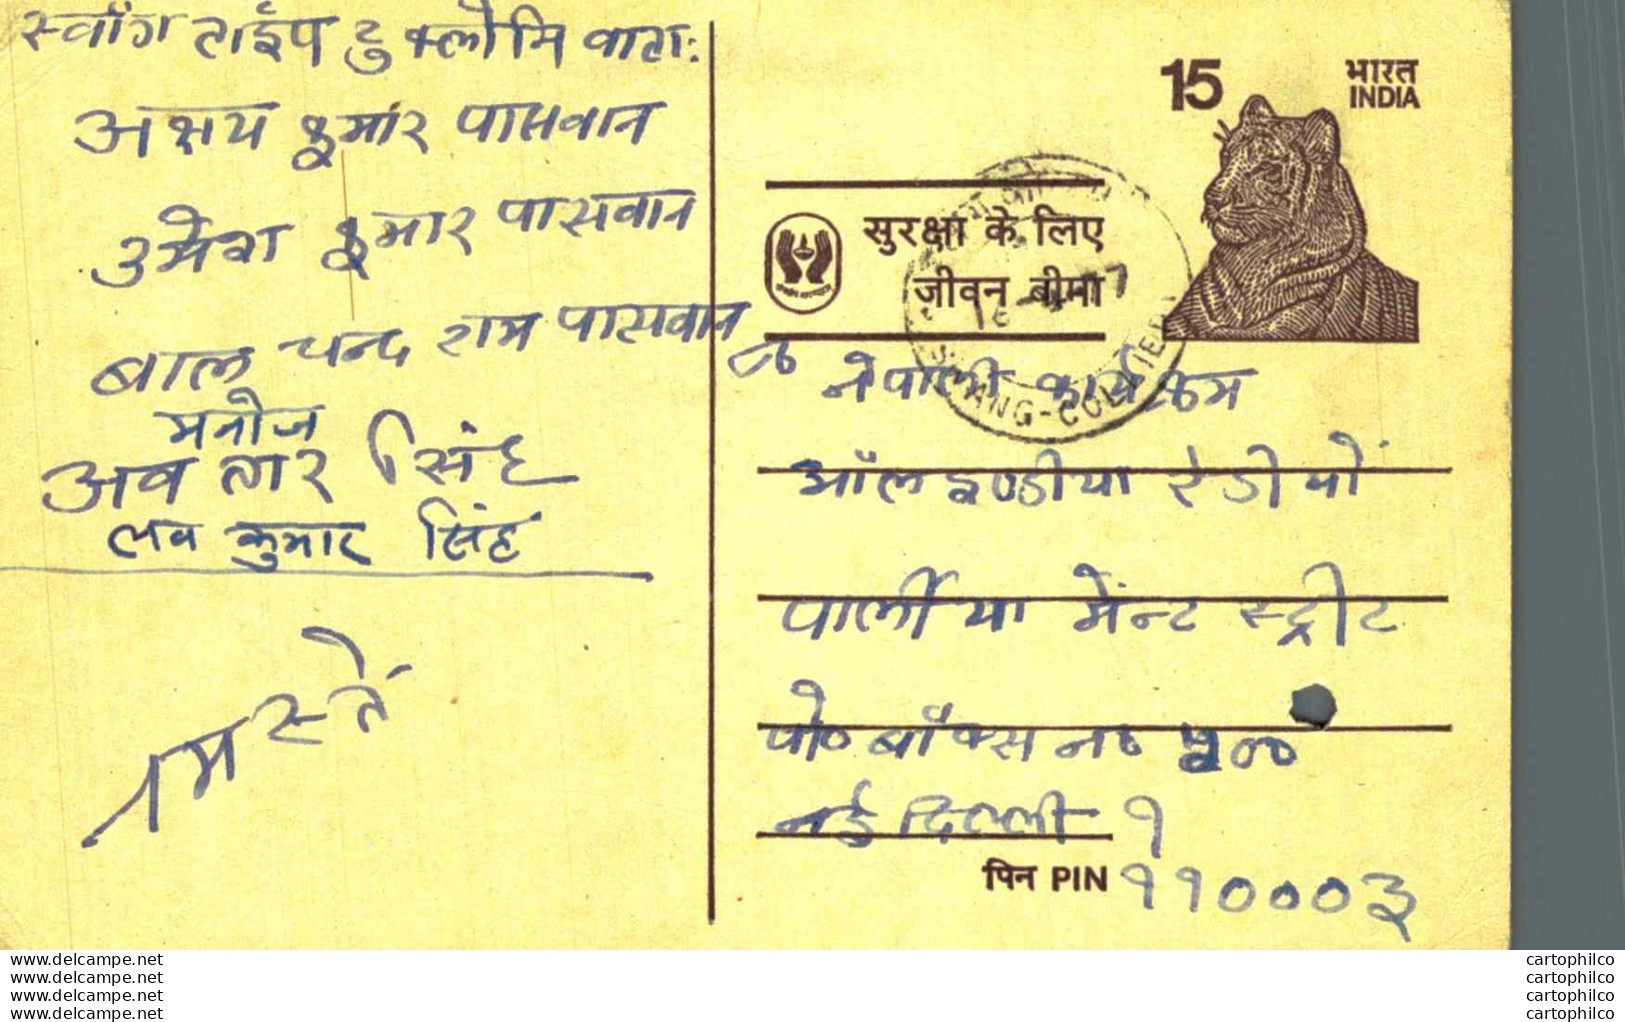 स्वाँग टाईप टु क्लोमि वाटा:
अक्षय कुमार पासवान
उमेश कुमार पासवान
बाल चन्द राम पासवान
मनोज
अवतार सिंह
लव कुमार सिंह
नमस्ते
15
भारत
INDIA
सुरक्षा के लिए
जीवन बीमा
SWANG-COLLIERY
नेपाली कार्यक्रम
ऑल इण्डीया रेडीयों
पार्लीयामेंन्ट स्ट्रीट
पो० बॉक्स न० ५००
नई दिल्ली १
पिन PIN ११०००३
www.delcampe.net
www.delcampe.net
www.delcampe.net
www.delcampe.net
cartophilco
cartophilco
cartophilco
cartophilco